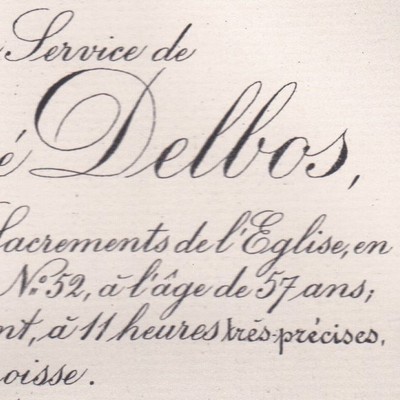 Service de
é Delbos,
Sacrements de l'Eglise, en
N.º 52, à l'âge de 57 ans;
nt, à 11 heures très-précises,
oisse.